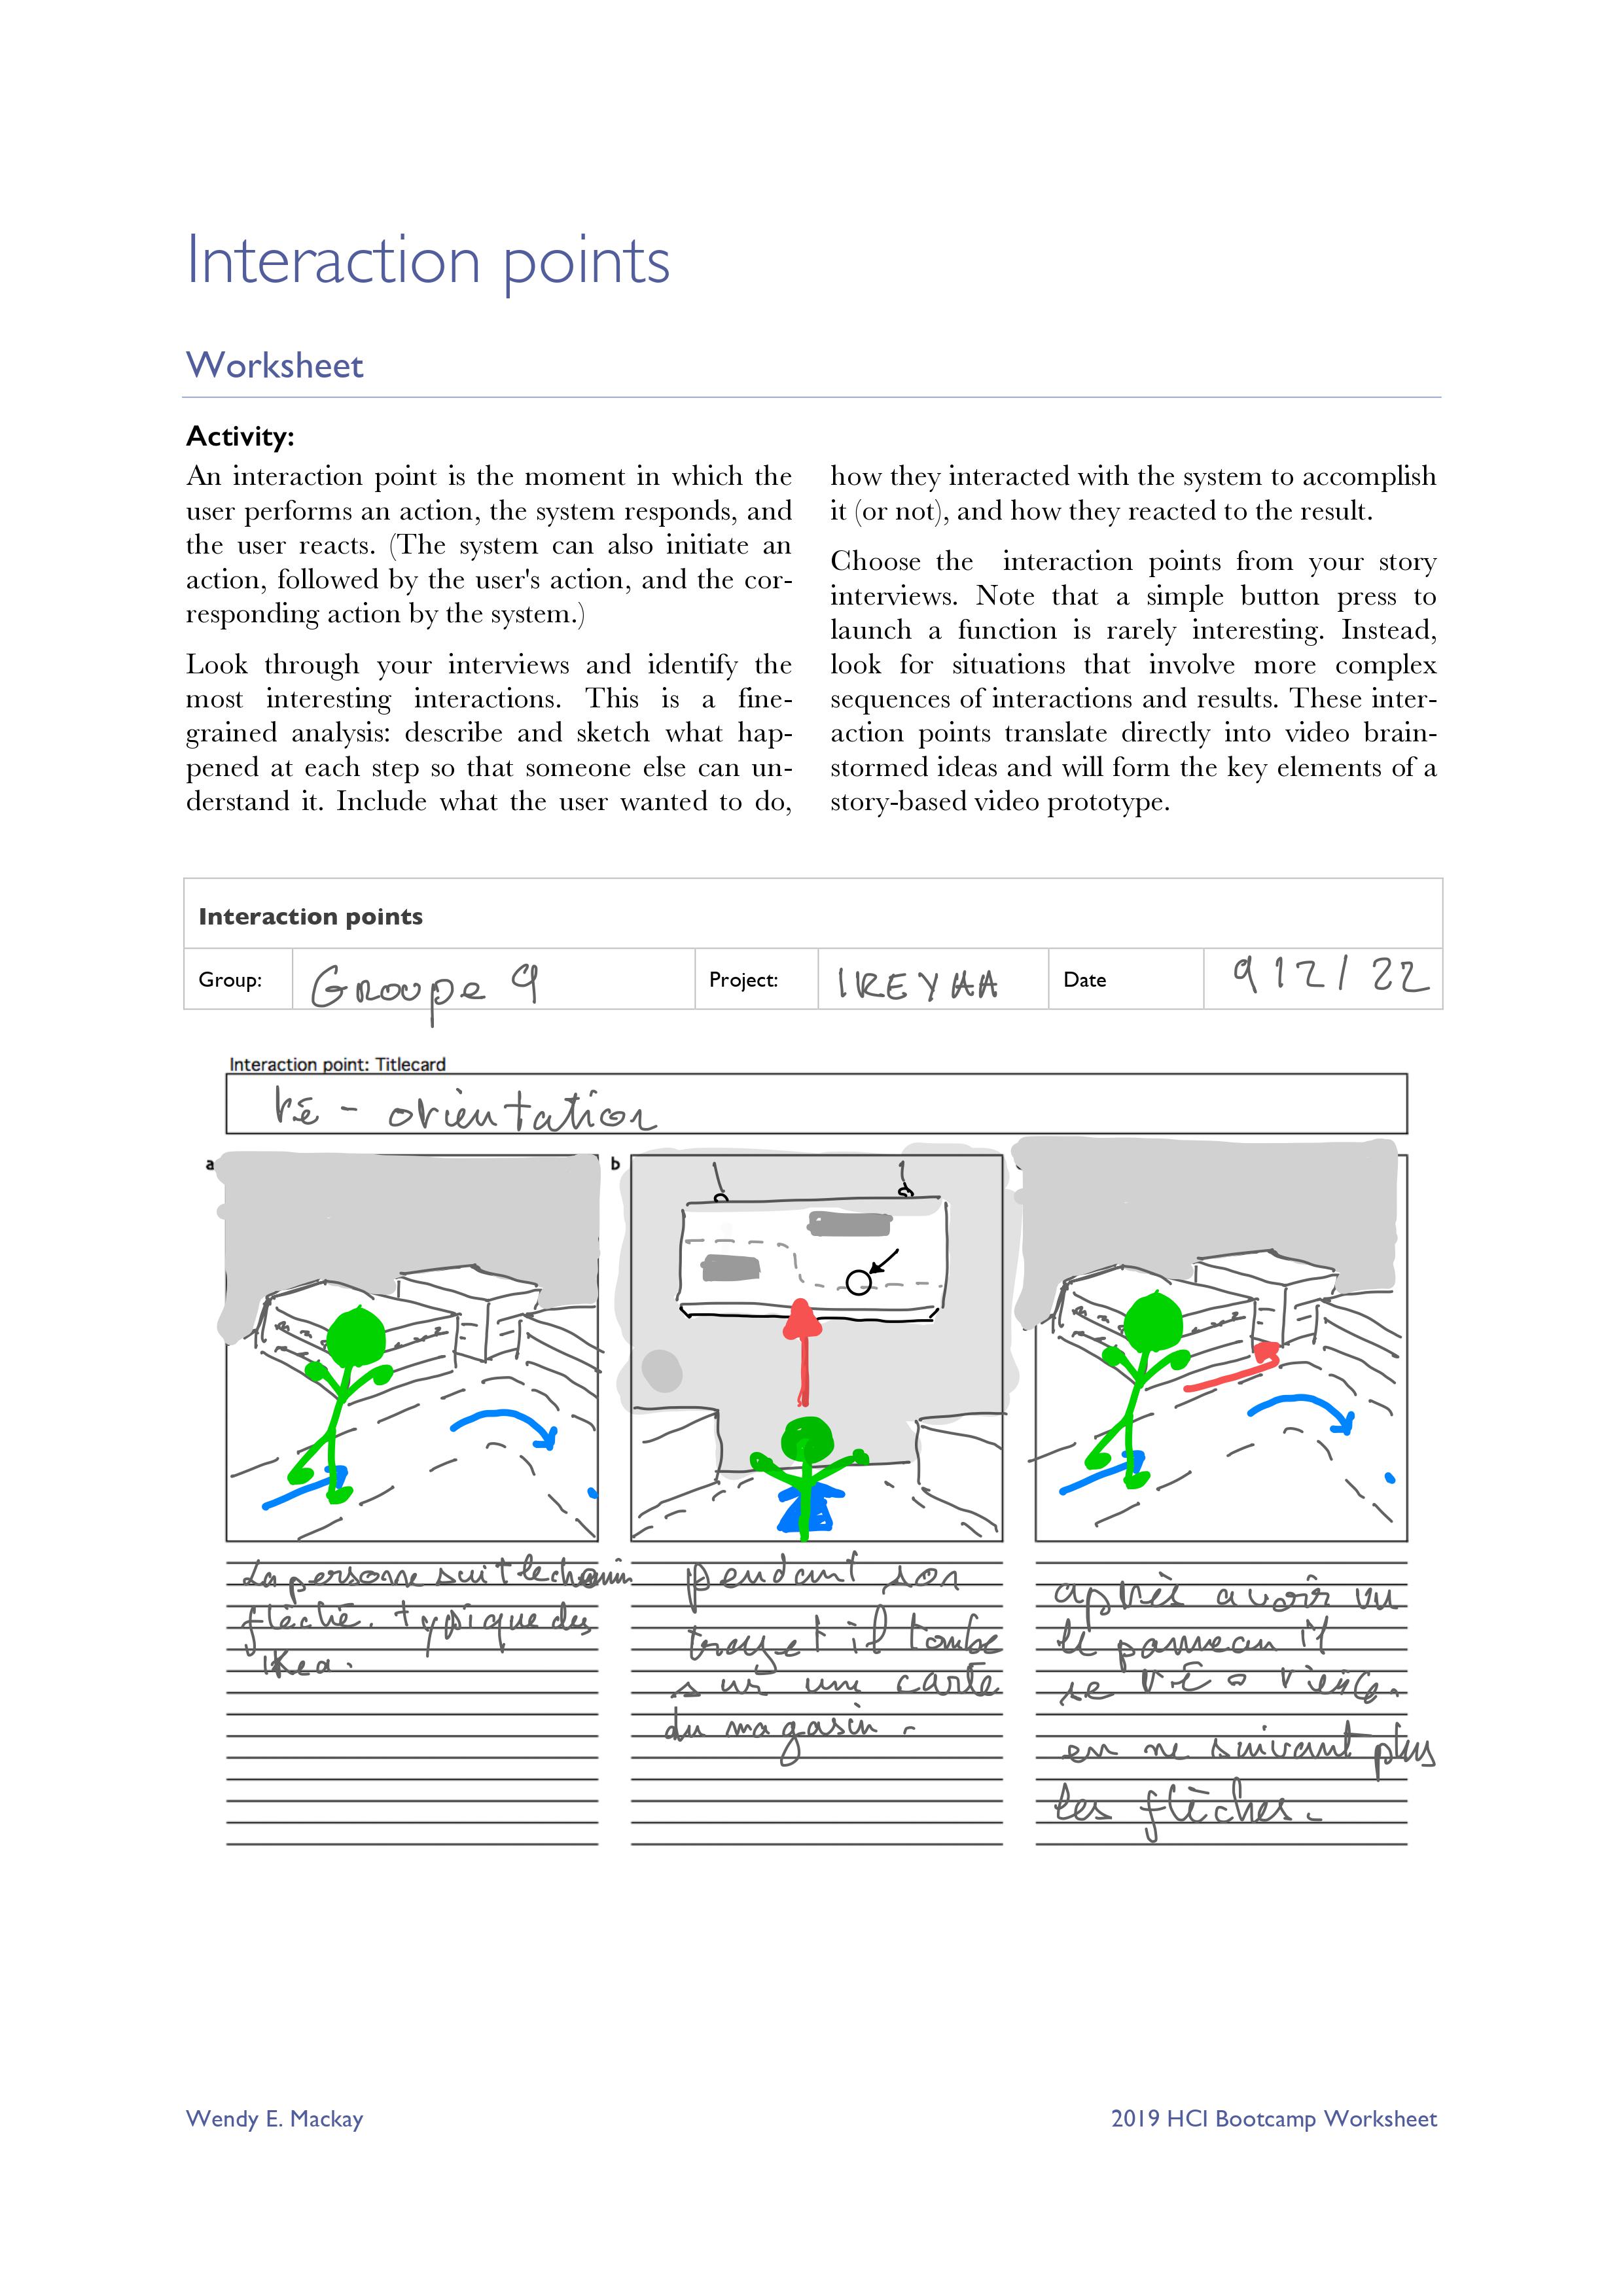 Interaction points
Worksheet
Activity:
An interaction point is the moment in which the
user performs an action, the system responds, and
the user reacts. (The system can also initiate an
action, followed by the user's action, and the cor-
responding action by the system.)
Look through your interviews and identify the
most interesting interactions. This is a fine-
grained analysis: describe and sketch what hap-
pened at each step so that someone else can un-
derstand it. Include what the user wanted to do,
how they interacted with the system to accomplish
it (or not), and how they reacted to the result.
Choose the interaction points from your story
interviews. Note that a simple button press to
launch a function is rarely interesting. Instead,
look for situations that involve more complex
sequences of interactions and results. These inter-
action points translate directly into video brain-
stormed ideas and will form the key elements of a
story-based video prototype.
Interaction points
Group: Groupe 9 Project: Date
Interaction point: Titlecard
ré - orientation
a
b
La personne suit le chemin
fléché. typique des
ikea.
pendant son
trajet il tombe
sur une carte
du magasin.
après avoir vu
le panneau il
se
en ne suivant plus
les flèches.
Wendy E. Mackay
2019 HCI Bootcamp Worksheet